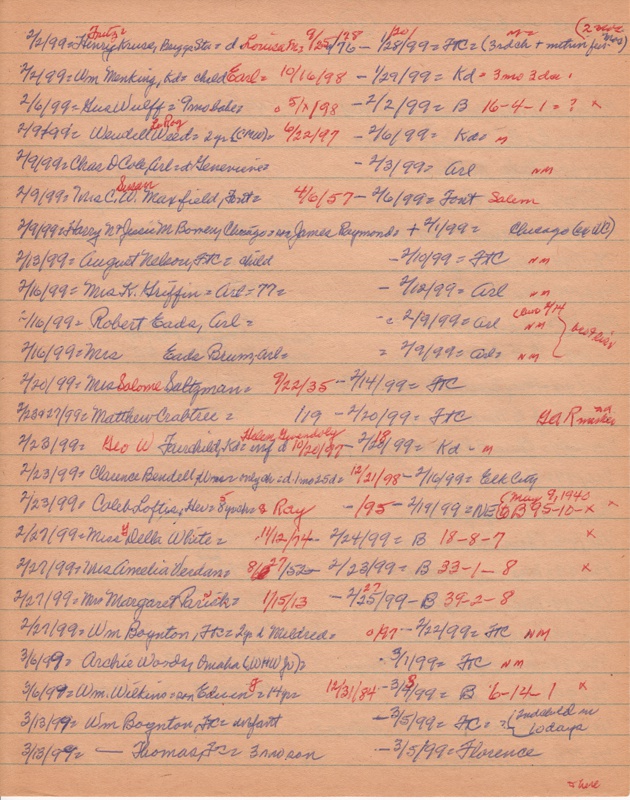 (2 mos
Fritz= 9/ /28 1/20/ m=
2/2/99= Henry Kruse, Briggs Sta= d Louisa M= 9/25/76 - 1/28/99= FtC= (3rd
2/2/99= Wm Menking, Kd= child Earl= 10/16/98 - 1/29/99= Kd= 3mo 3da
2/6/99= Gus Wulff= 9mo babe= 5/ /98 - 2/2/99= B 16-4-1=? x
LeRoy
2/9/99= Wendell Weed= 2yr (CMW)= 6/22/97 - 2/6/99= Kd= m
2/9/99= Chas D Cole, Arl= d Genevieve= - 2/3/99= Arl NM
Susan
2/9/99= Mrs C.W. Maxfield, Font= 4/6/57 - 2/6/99= Font Salem
2/9/99= Harry N + Jessie M Bowen, Chicago= son James Raymond= + 2/1/99= Chicago
2/13/99= August Nelson, FtC= child - 2/10/99= FtC NM
2/16/99= Mrs K. Griffin= Arl= 77= - 2/12/99= Arl NM
2/16/99= Robert Eads, Arl= = 2/9/99= Arl NM
2/16/99= Mrs Eads Brum, Arl= = 2/9/99= Arl= NM
2/20/99= Mrs Salome Saltzman= 9/22/35 - 2/14/99= FtC
2/23+27/99= Matthew Crabtree= 1/9 - 2/20/99= FtC GAR marker
Helen Gwendoly 18
2/23/99= Geo W Fairchild, Kd= inf d 10/20/97 - 2/20/99= Kd - m
2/23/99= Clarence Bendell + Wm= only da= d 1mo25d= 12/21/98 - 2/16/99= Elk City
{May 9, 1940
2/23/99= Caleb Loftis, Hew= 8yrs= Ray - /95 - 2/19/99= NE B 95-10-x x
2/27/99= Miss Della White= 11/12/74 - 2/24/99= B 18-8-7 x
2/27/99= Mrs Amelia Verdan= 8/27/52 - 2/23/99= B 33-1-8 x
27
2/27/99= Mrs Margaret Parish= 1/15/13 - 2/25/99 - B 39-2-8
2/27/99= Wm Boynton, FtC= 2yr d Mildred= /97 - 2/22/99= FtC NM
3/6/99= Archie Woods, Omaha (WHW Jr)= - 3/1/99= FtC NM
3/6/99= Wm. Wilkins= son Edwin J= 14yr= 12/31/84 - 3/3/99= B 6-14-1 x
3/13/99= Wm Boynton, FtC= infant - 3/5/99= FtC= = {2nd child in
10 days
3/13/99= — Thomas, FtC= 3mo son - 3/5/99= Florence
here